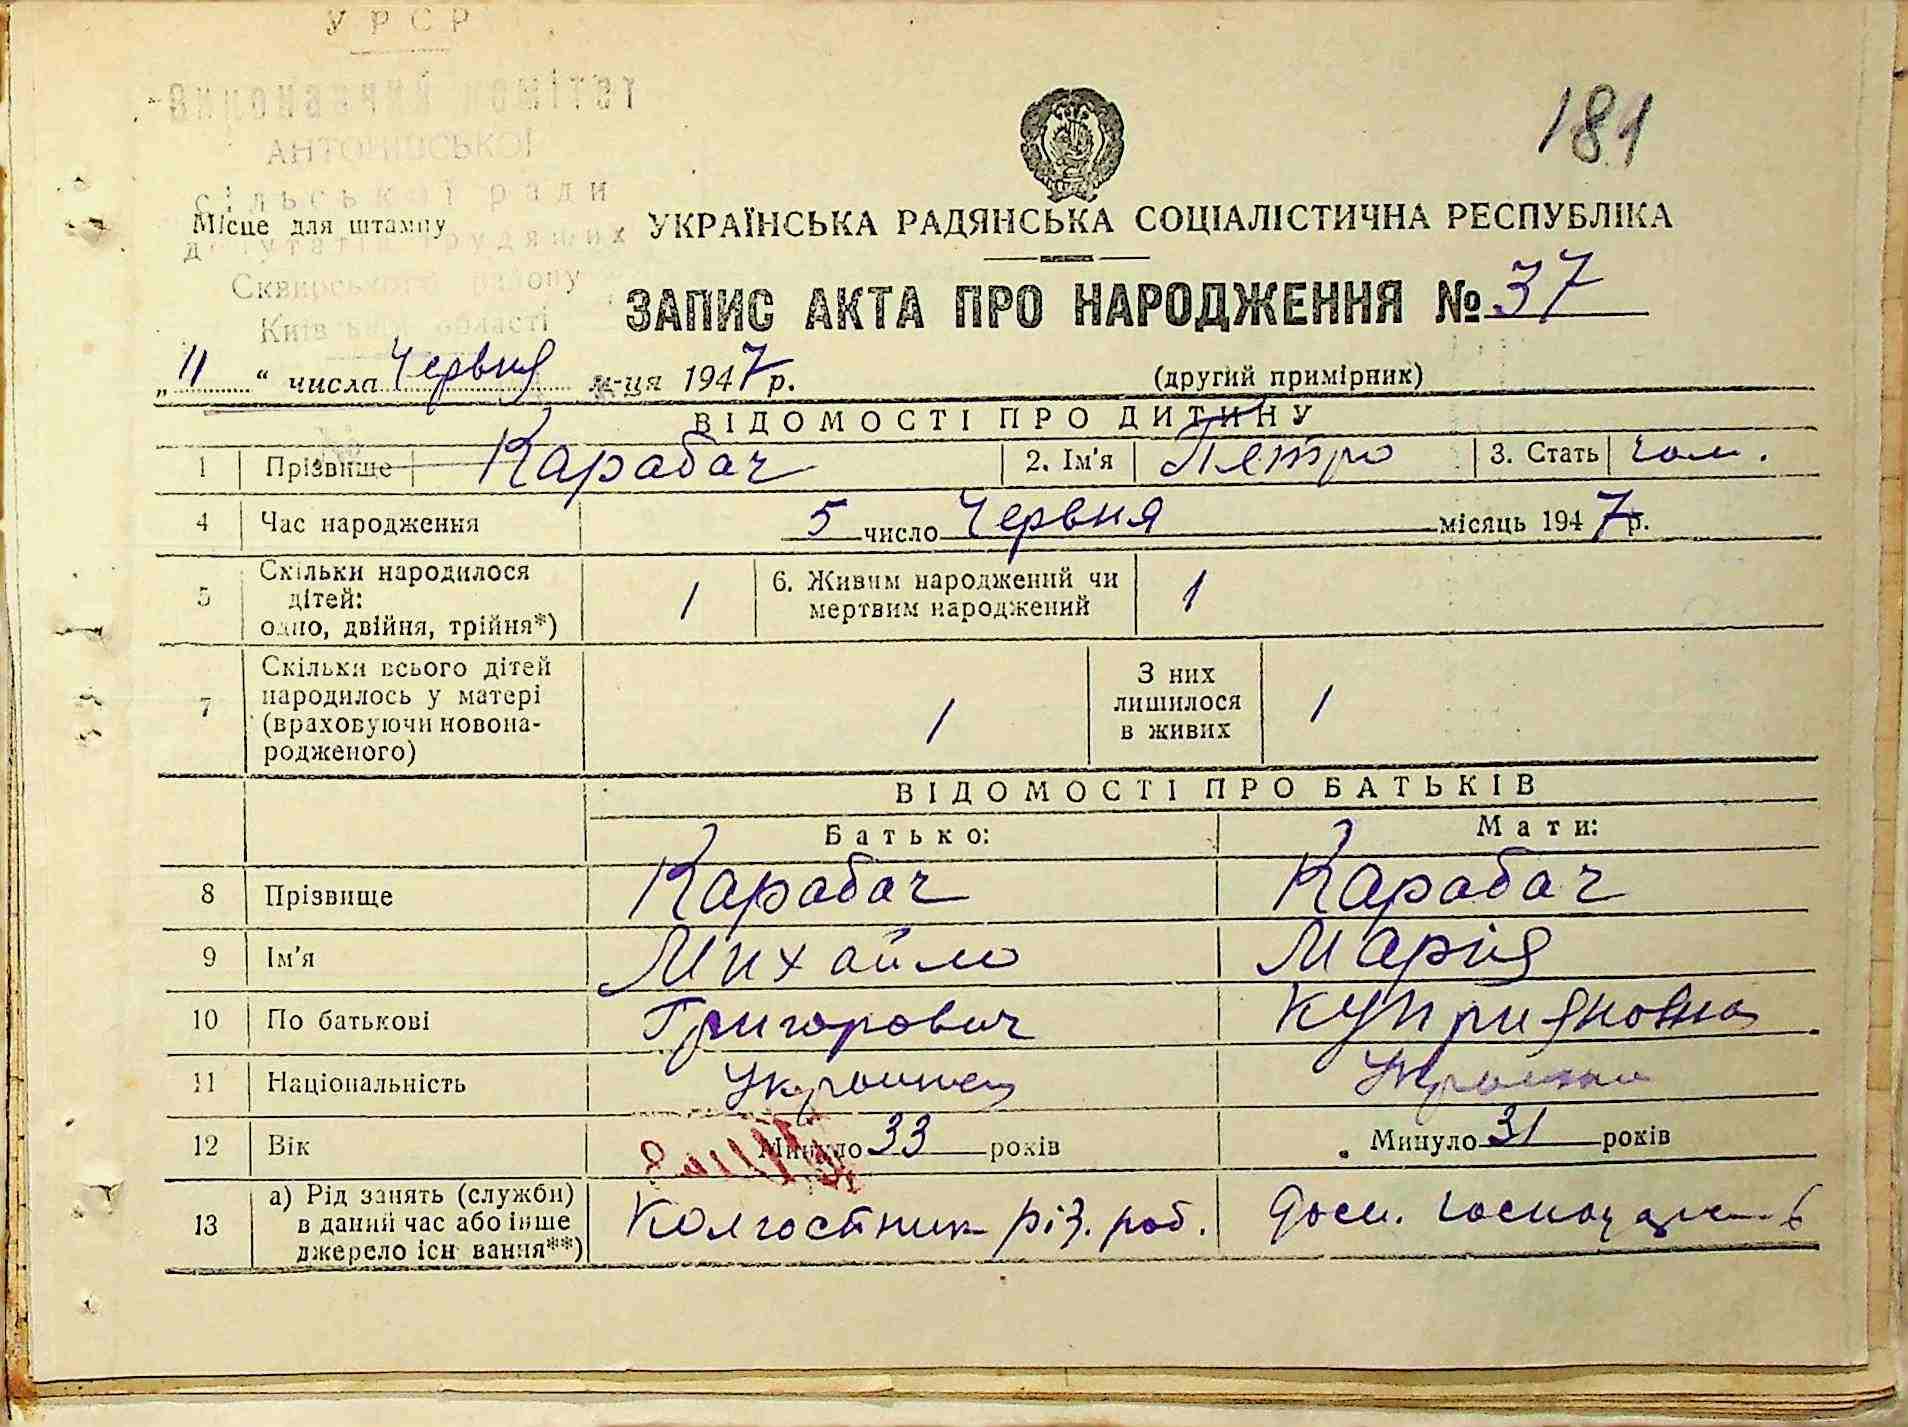 УРСР
Виконавчий комітет
АНТОНІВСЬКОЇ
сільської ради
Місце для штампу
депутатів трудящих
Сквирського району
Київської області
181
УКРАЇНСЬКА РАДЯНСЬКА СОЦІАЛІСТИЧНА РЕСПУБЛІКА
ЗАПИС АКТА ПРО НАРОДЖЕННЯ № 37
„11“ числа Червня м-ця 1947 р.
(другий примірник)
ВІДОМОСТІ ПРО ДИТИНУ
1 Прізвище Карабач 2. Ім'я Петро 3. Стать чол.
4 Час народження 5 число Червня місяць 1947 р.
5 Скільки народилося дітей: одно, двійня, трійня*) 1 6. Живим народжений чи мертвим народжений 1
7 Скільки всього дітей народилось у матері (враховуючи новонародженого) 1 З них лишилося в живих 1
ВІДОМОСТІ ПРО БАТЬКІВ
Батько: Мати:
8 Прізвище Карабач Карабач
9 Ім'я Михайло Марія
10 По батькові Григорович Куприяновна
11 Національність Украинец Украинка
12 Вік Минуло 33 років Минуло 31 років
13 а) Рід занять (служби) в даний час або інше джерело існування**) Колгостник різ. роб.